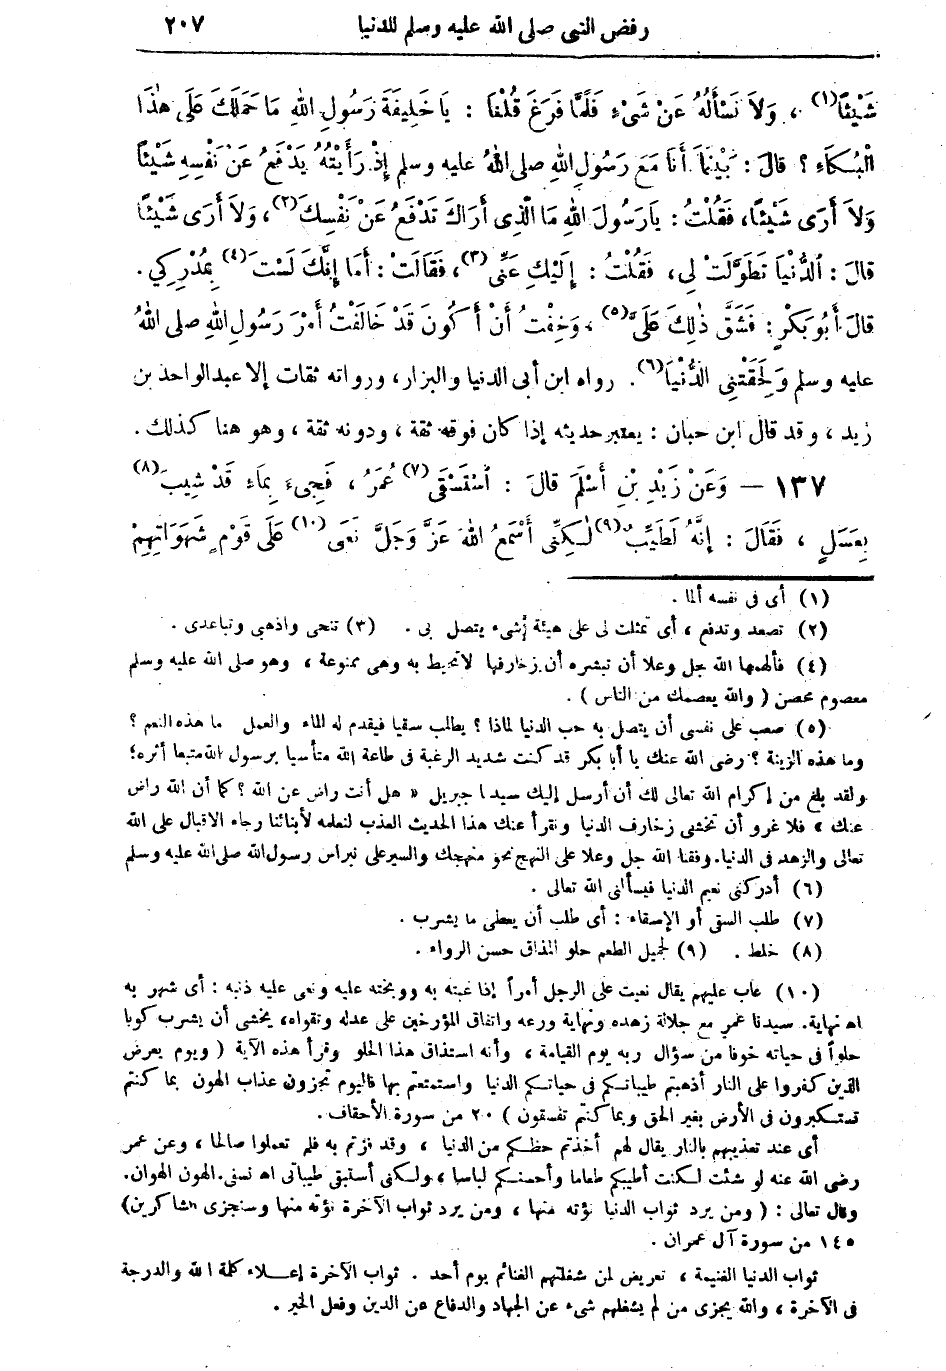 رفض النبى صلى الله عليه وسلم للدنيا ٢٠٧
شَيْئًا(١) ، وَلاَ نَسْأَلُهُ عَنْ شَىْءٍ فَلَمَّا فَرَغَ قُلْنَا : يَا خَلِيفَةَ رَسُولِ اللهِ مَا حَمَلَكَ عَلَى هٰذَا
الْبُكَاءِ ؟ قالَ : بَيْنَمَا أَنَا مَعَ رَسُولِ اللهِ صلى اللهُ عليه وسلم إِذْ رَأَيْتُهُ يَدْفَعُ عَنْ نَفْسِهِ شَيْئًا
وَلاَ أَرَى شَيْئًا، فَقُلْتُ : يَارَسُولَ اللهِ مَا الَّذِى أَرَاكَ تَدْفَعُ عَنْ نَفْسِكَ(٢)، وَلاَ أَرَى شَيْئًا
قالَ : الدُّنْيَا تَطَوَّلَتْ لِى، فَقُلْتُ : إِلَيْكِ عَنِّى(٣)، فَقَالَتْ : أَمَا إِنَّكَ لَسْتَ(٤) بِمُدْرِكِي .
قالَ أَبُو بَكْرٍ : فَشَقَّ ذٰلِكَ عَلَىَّ(٥) ، وَخِفْتُ أَنْ أَكُونَ قَدْ خَالَفْتُ أَمْرَ رَسُولِ اللهِ صلى اللهُ
عليه وسلم وَلَحِقَتْنِى الدُّنْيَا(٦). رواه ابن أبى الدنيا والبزار، ورواته ثقات إلا عبد الواحد بن
زيد ، وقد قال ابن حبان : يعتبر حديثه إذا كان فوقه ثقة ، ودونه ثقة ، وهو هنا كذلك .
١٣٧ — وَعَنْ زَيْدِ بْنِ أَسْلَمَ قالَ : اسْتَسْقَى(٧) عُمَرُ ، فَجِىءَ بِمَاءٍ قَدْ شِيبَ(٨)
بِعَسَلٍ ، فَقَالَ : إِنَّهُ لَطَيِّبٌ(٩) لٰكِنِّى أَسْمَعُ اللهَ عَزَّ وَجَلَّ نَعَى(١٠) عَلَى قَوْمٍ شَهَوَاتِهِمْ
(١) أى فى نفسه ألما .
(٢) تصعد وتدفع ، أى تمثلت لى على هيئة شىء يتصل بى . (٣) تنحى واذهبى وتباعدى .
(٤) فألهمها الله جل وعلا أن تبشره أن زخارفها لا تحيط به وهى ممنوعة ، وهو صلى الله عليه وسلم
معصوم محصن ( والله يعصمك من الناس ) .
(٥) صعب على نفسى أن يتصل به حب الدنيا لماذا ؟ يطالب سقيا فيقدم له الماء والعمل ما هذه النعم ؟
وما هذه الزينة ؟ رضى الله عنك يا أبا بكر قد كنت شديد الرغبة فى طاعة الله متأسيا برسول الله متبعا أثره؛
ولقد بلغ من إكرام الله تعالى لك أن أرسل إليك سيدنا جبريل « هل أنت راض عن الله ؟ كما أن الله راض
عنك » فلا غرو أن تخشى زخارف الدنيا ونقرأ عنك هذا الحديث العذب لنعلمه لأبنائنا رجاء الاقبال على الله
تعالى والزهد فى الدنيا. وفقنا الله جل وعلا على النهج نحو منهجك والسير على نبراس رسول الله صلى الله عليه وسلم
(٦) أدركنى نعيم الدنيا فيسألنى الله تعالى .
(٧) طلب السقى أو الإسقاء : أى طلب أن يعطى ما يشرب .
(٨) خلط . (٩) لجميل الطعم حلو المذاق حسن الرواء .
(١٠) عاب عليهم يقال نعيت على الرجل أمراً إذا عبته به ووبخته عليه ونعى عليه ذنبه : أى شهر به
اه نهاية. سيدنا عمر مع جلالة زهده ونهاية ورعه واتفاق المؤرخين على عدله وتقواه، يخشى أن يشرب كوبا
حلواً فى حياته خوفا من سؤال ربه يوم القيامة ، وأنه استذاق هذا الحلو وقرأ هذه الآية ( ويوم يعرض
الذين كفروا على النار أذهبتم طيباتكم فى حياتكم الدنيا واستمتعتم بها فاليوم تجزون عذاب الهون بما كنتم
تستكبرون فى الأرض بغير الحق وبما كنتم تفسقون ) ٢٠ من سورة الأحقاف .
أى عند تعذيبهم بالنار يقال لهم أخذتم حظكم من الدنيا ، وقد فزتم به فلم تعملوا صالحا ، وعن عمر
رضى الله عنه لو شئت لكنت أطيبكم طعاما وأحسنكم لباسا ، ولكنى أستبقى طيباتى اه نسفى. الهون الهوان.
وقال تعالى : ( ومن يرد ثواب الدنيا نؤته منها ، ومن يرد ثواب الآخرة نؤته منها وسنجزى الشاكرين)
١٤٥ من سورة آل عمران .
ثواب الدنيا الغنيمة ، تعريض لمن شغلتهم الغنائم يوم أحد . ثواب الآخرة إعلاء كلمة الله والدرجة
فى الآخرة ، والله يجزى من لم يشغلهم شىء عن الجهاد والدفاع عن الدين وفعل الخير .